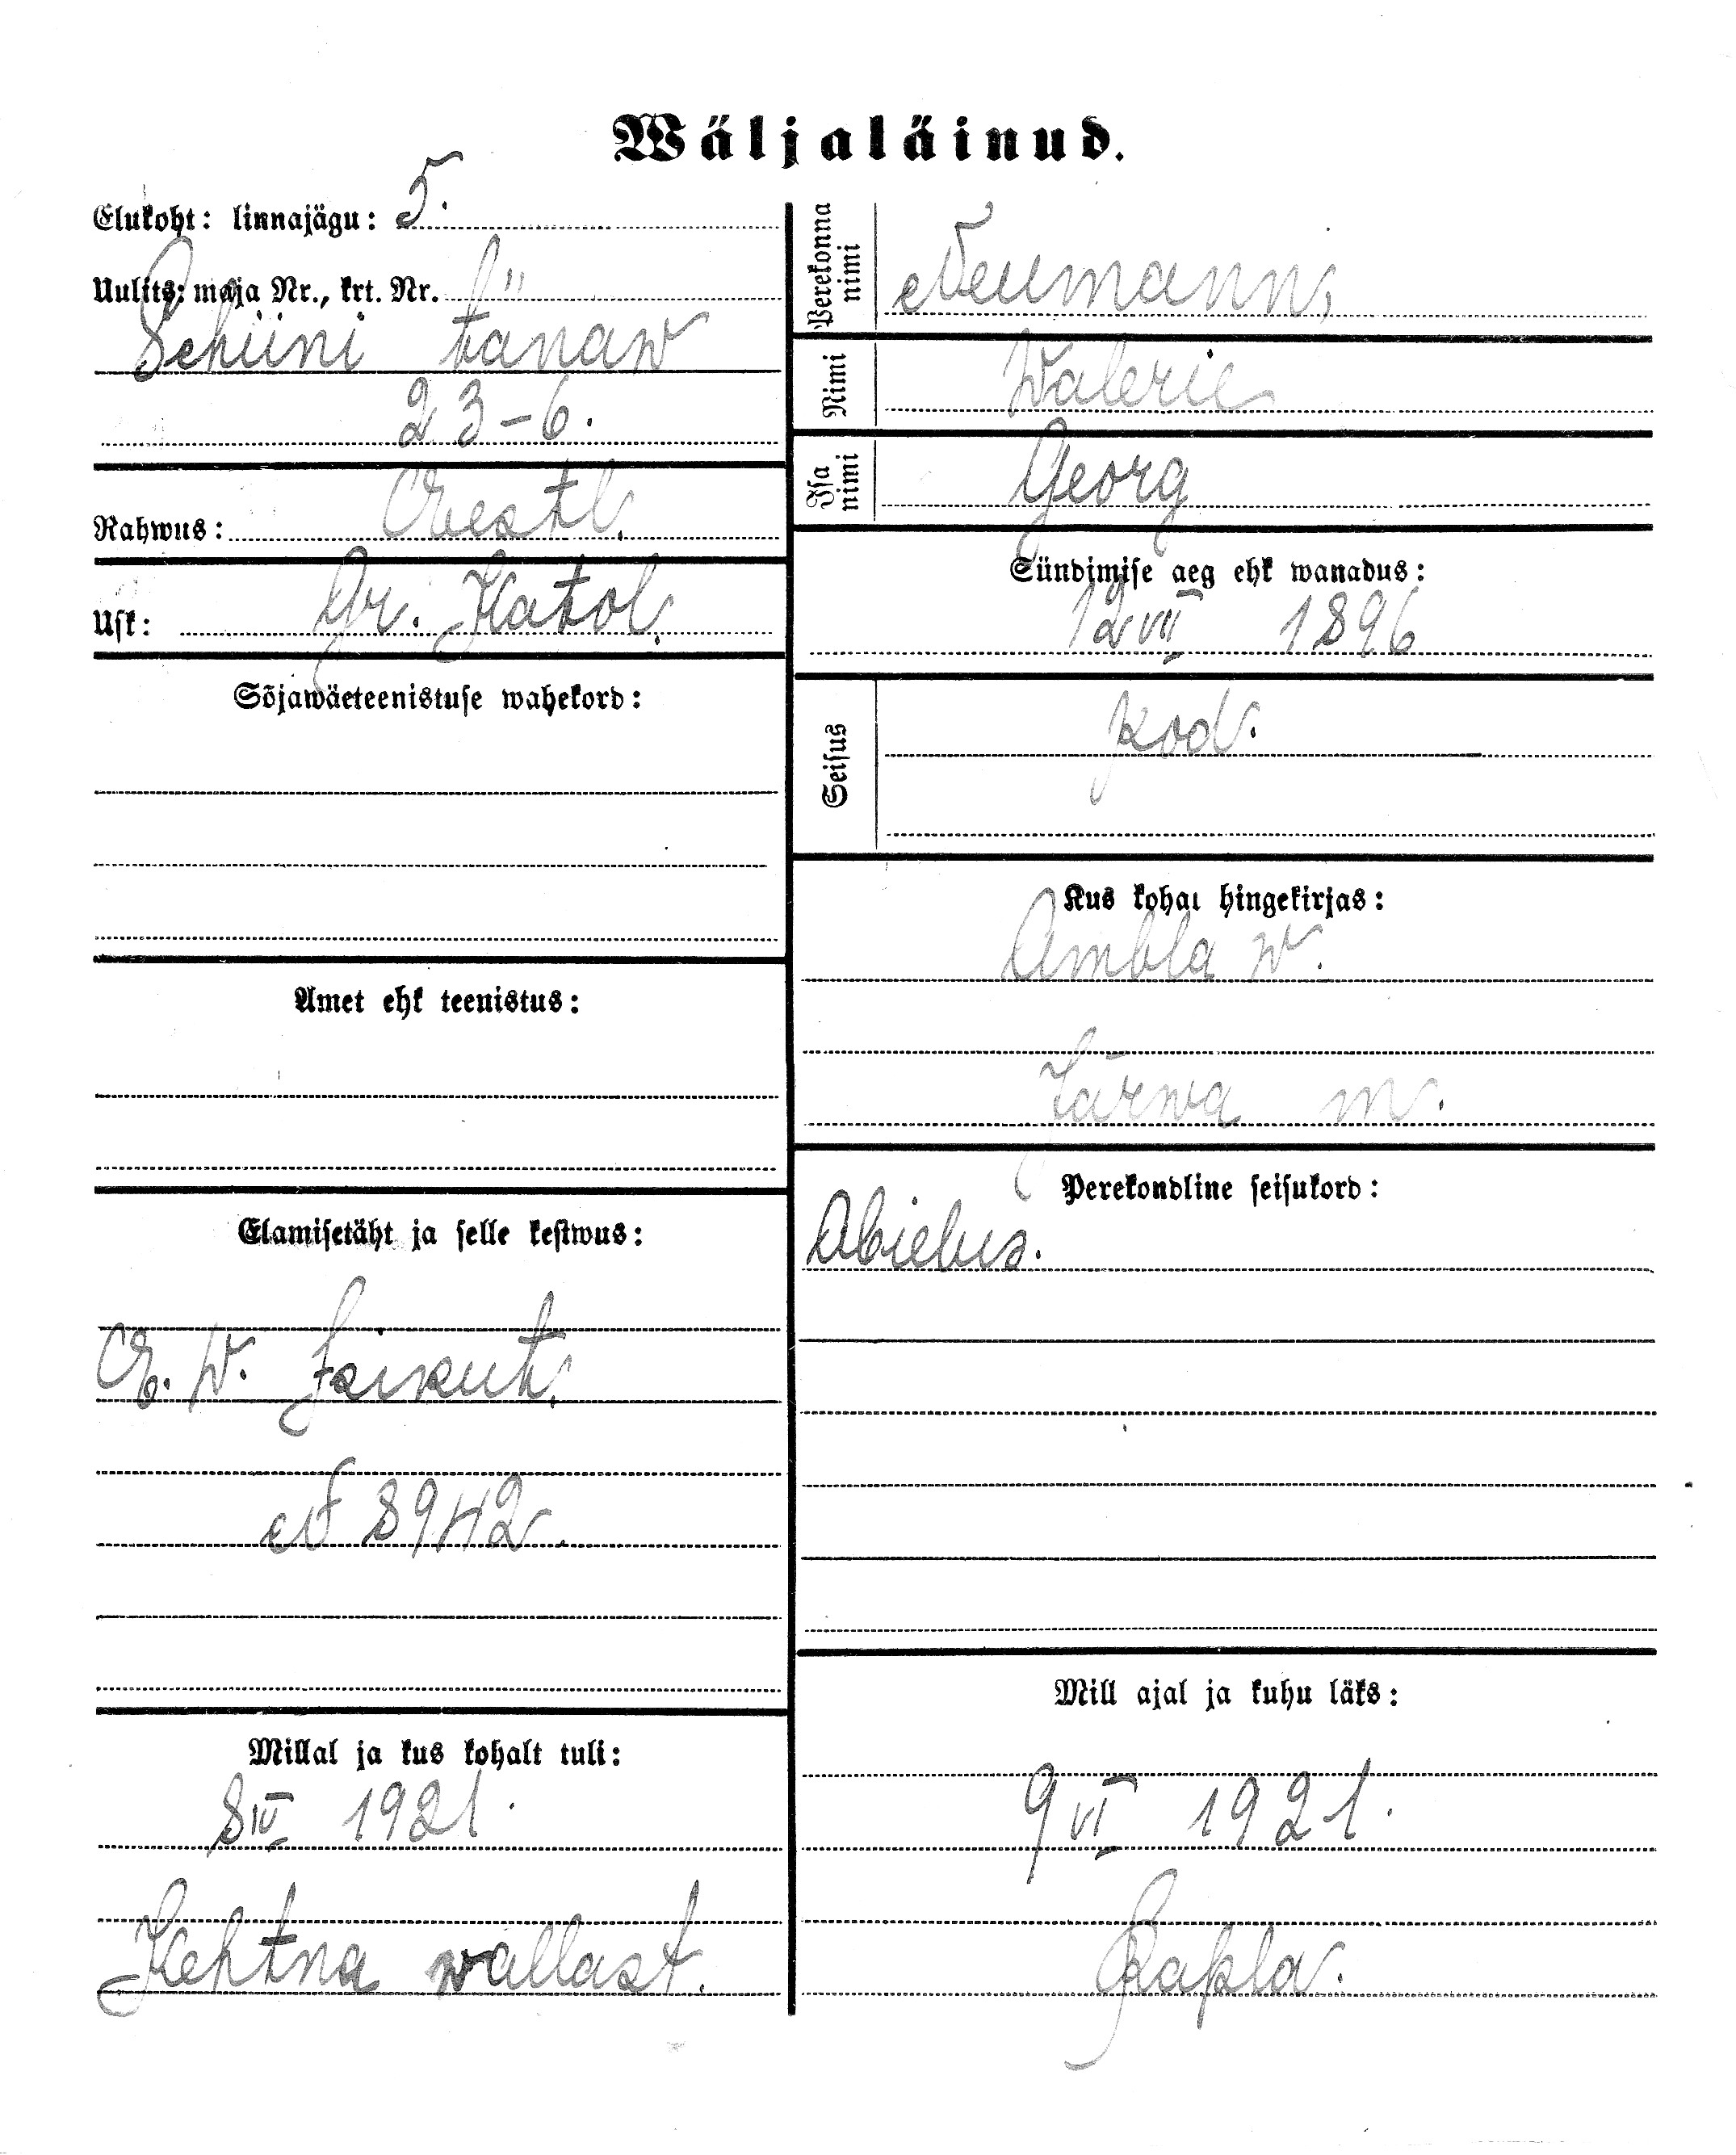 Wäljaläinud.
Elukoht: linnajägu: 5.
Uulits: maja Nr., krt. Nr.
tänaw
23-6.
Rahwus: Eestl.
Usk: Gr. Katol.
Sõjawäeteenistuse wahekord:
Amet ehk teenistus:
Elamisetäht ja selle kestwus:
E. W. Isikut.
№ 8942.
Millal ja kus kohalt tuli:
8 IV 1921.
Kehtna wallast.
Perekonna nimi Neumann,
Nimi Walerie
Isa nimi Georg
Sündimise aeg ehk wanadus:
12 VII 1896
Seisus kod.
Kus kohal hingekirjas:
Ambla w.
Järwa m.
Perekondline seisukord:
Abielus.
Mill ajal ja kuhu läks:
9 VI 1921.
Rapla.